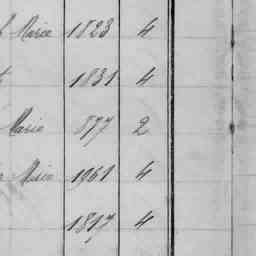 Marie 1823 4
1831 4
Marie 877 2
Marie 1961 4
1817 4